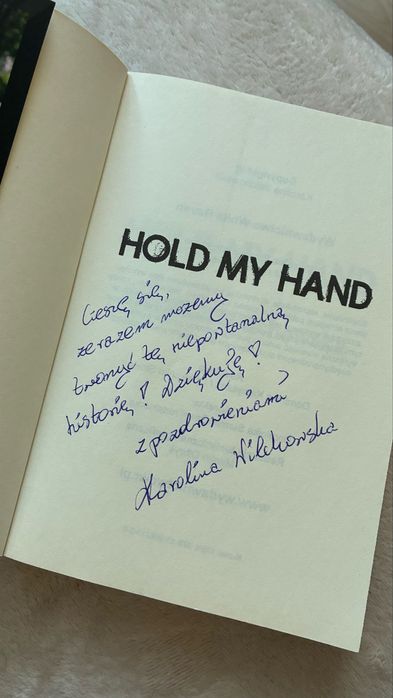 HOLD MY HAND
Cieszę się,
że razem możemy
tworzyć tę niepowtarzalną
historię! Dziękuję!
z pozdrowieniami
Karolina Wilchowska